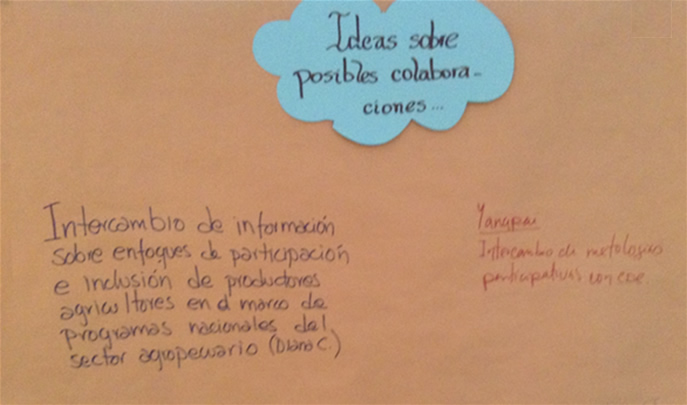 Ideas sobre
posibles colabora-
ciones...
Intercambio de información
sobre enfoques de participación
e inclusión de productores
agricultores en el marco de
programas nacionales del
sector agropecuario (Diana C.)
Yanapai
Intercambio de
participativas con